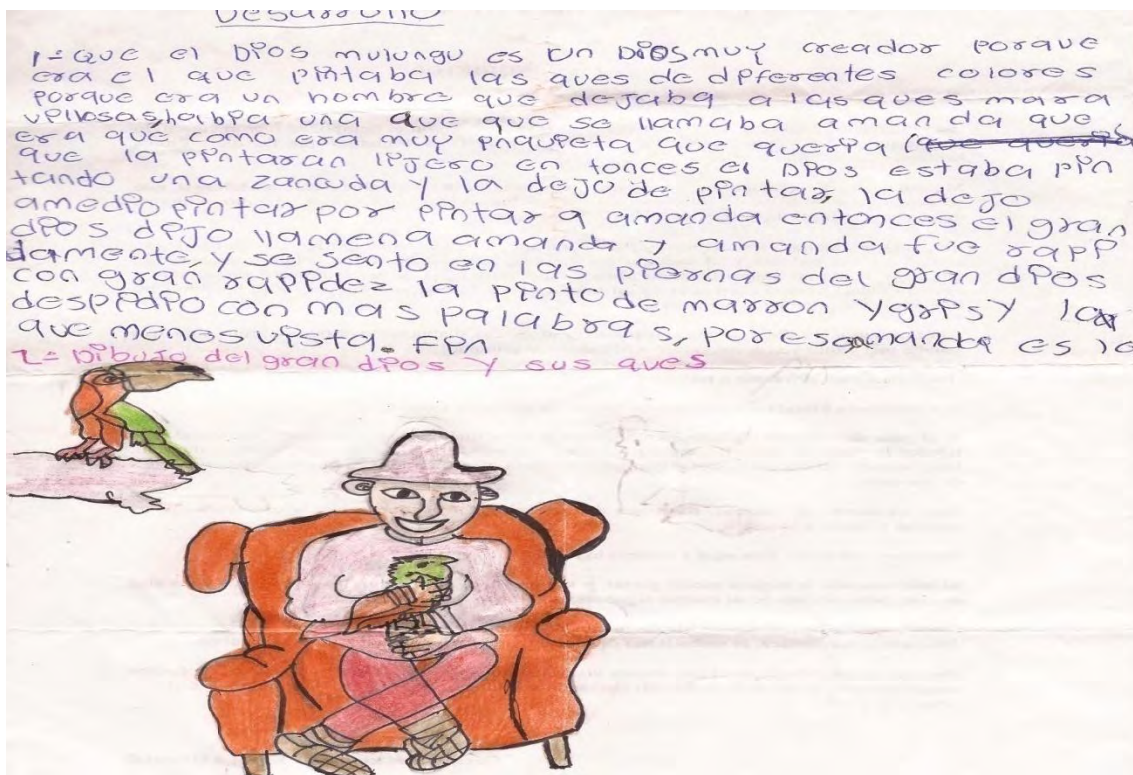 Desarrollo
1= Que el Dios mulungu es un Dios muy creador porque
era el que pintaba las aves de diferentes colores
porque era un hombre que dejaba a las aves mara
villosas, había una ave que se llamaba amanda que
era que como era muy inquieta que quería (que quería
que la pintaran lijero en tonces el Dios estaba pin
tando una zancuda y la dejo de pintar, la dejo
amedio pintar por pintar a amanda entonces el gran
dios dijo llamen a amanda y amanda fue rapi
damente, y se sento en las piernas del gran dios
con gran rapidez la pinto de marron y gris y la
despidio con mas palabras, por es amanda es la
que menos vista. Fin
2= Dibujo del gran dios y sus aves